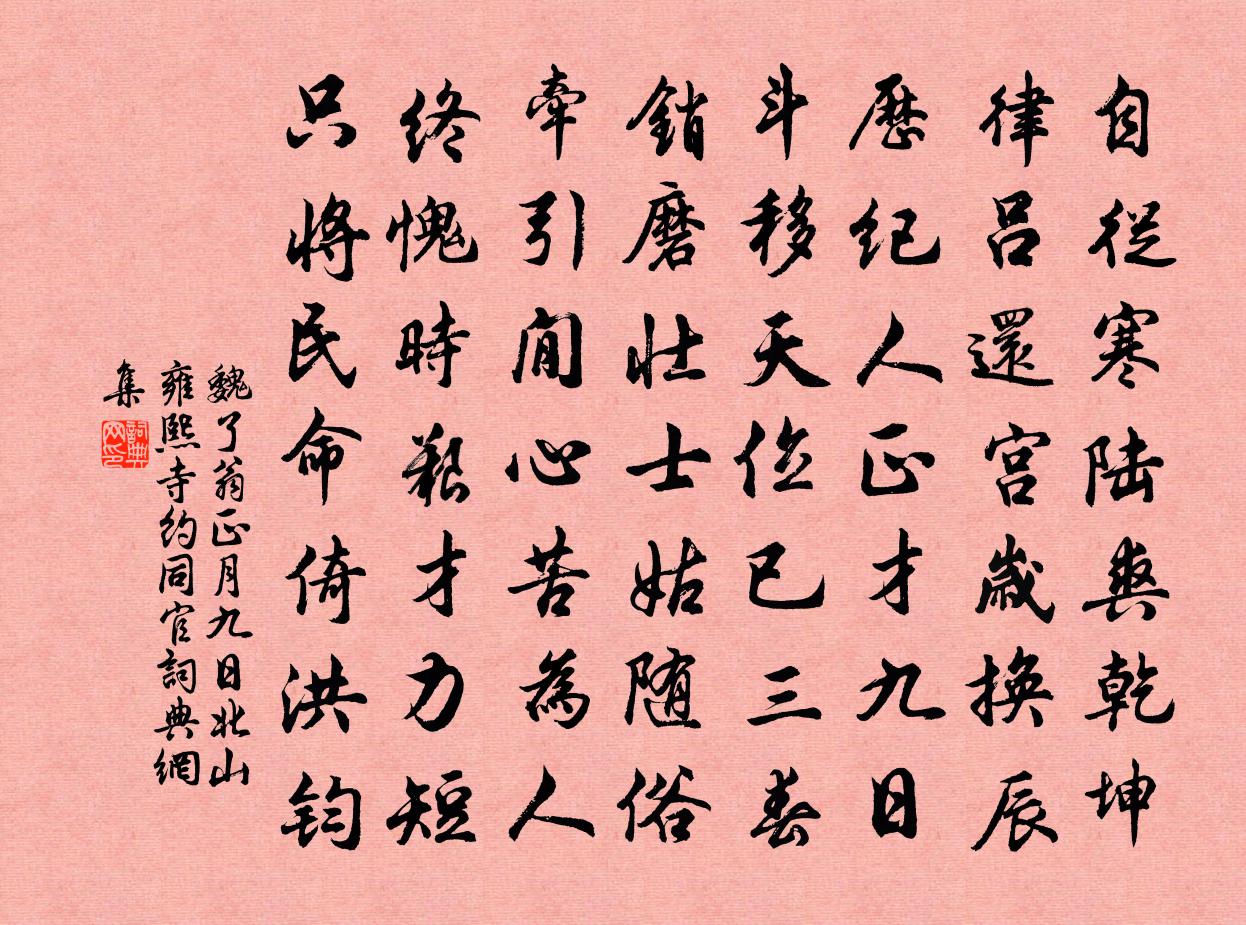 自從寒陸爽乾坤
律呂還宮歲換辰
歷紀人正才九日
斗移天位已三春
銷磨壯士姑随俗
牽引閒心苦為人
終愧時艱才力短
只將民命倚洪鈞
魏了翁正月九日北山
雍熙寺約同官詞典網
集
詞典網印